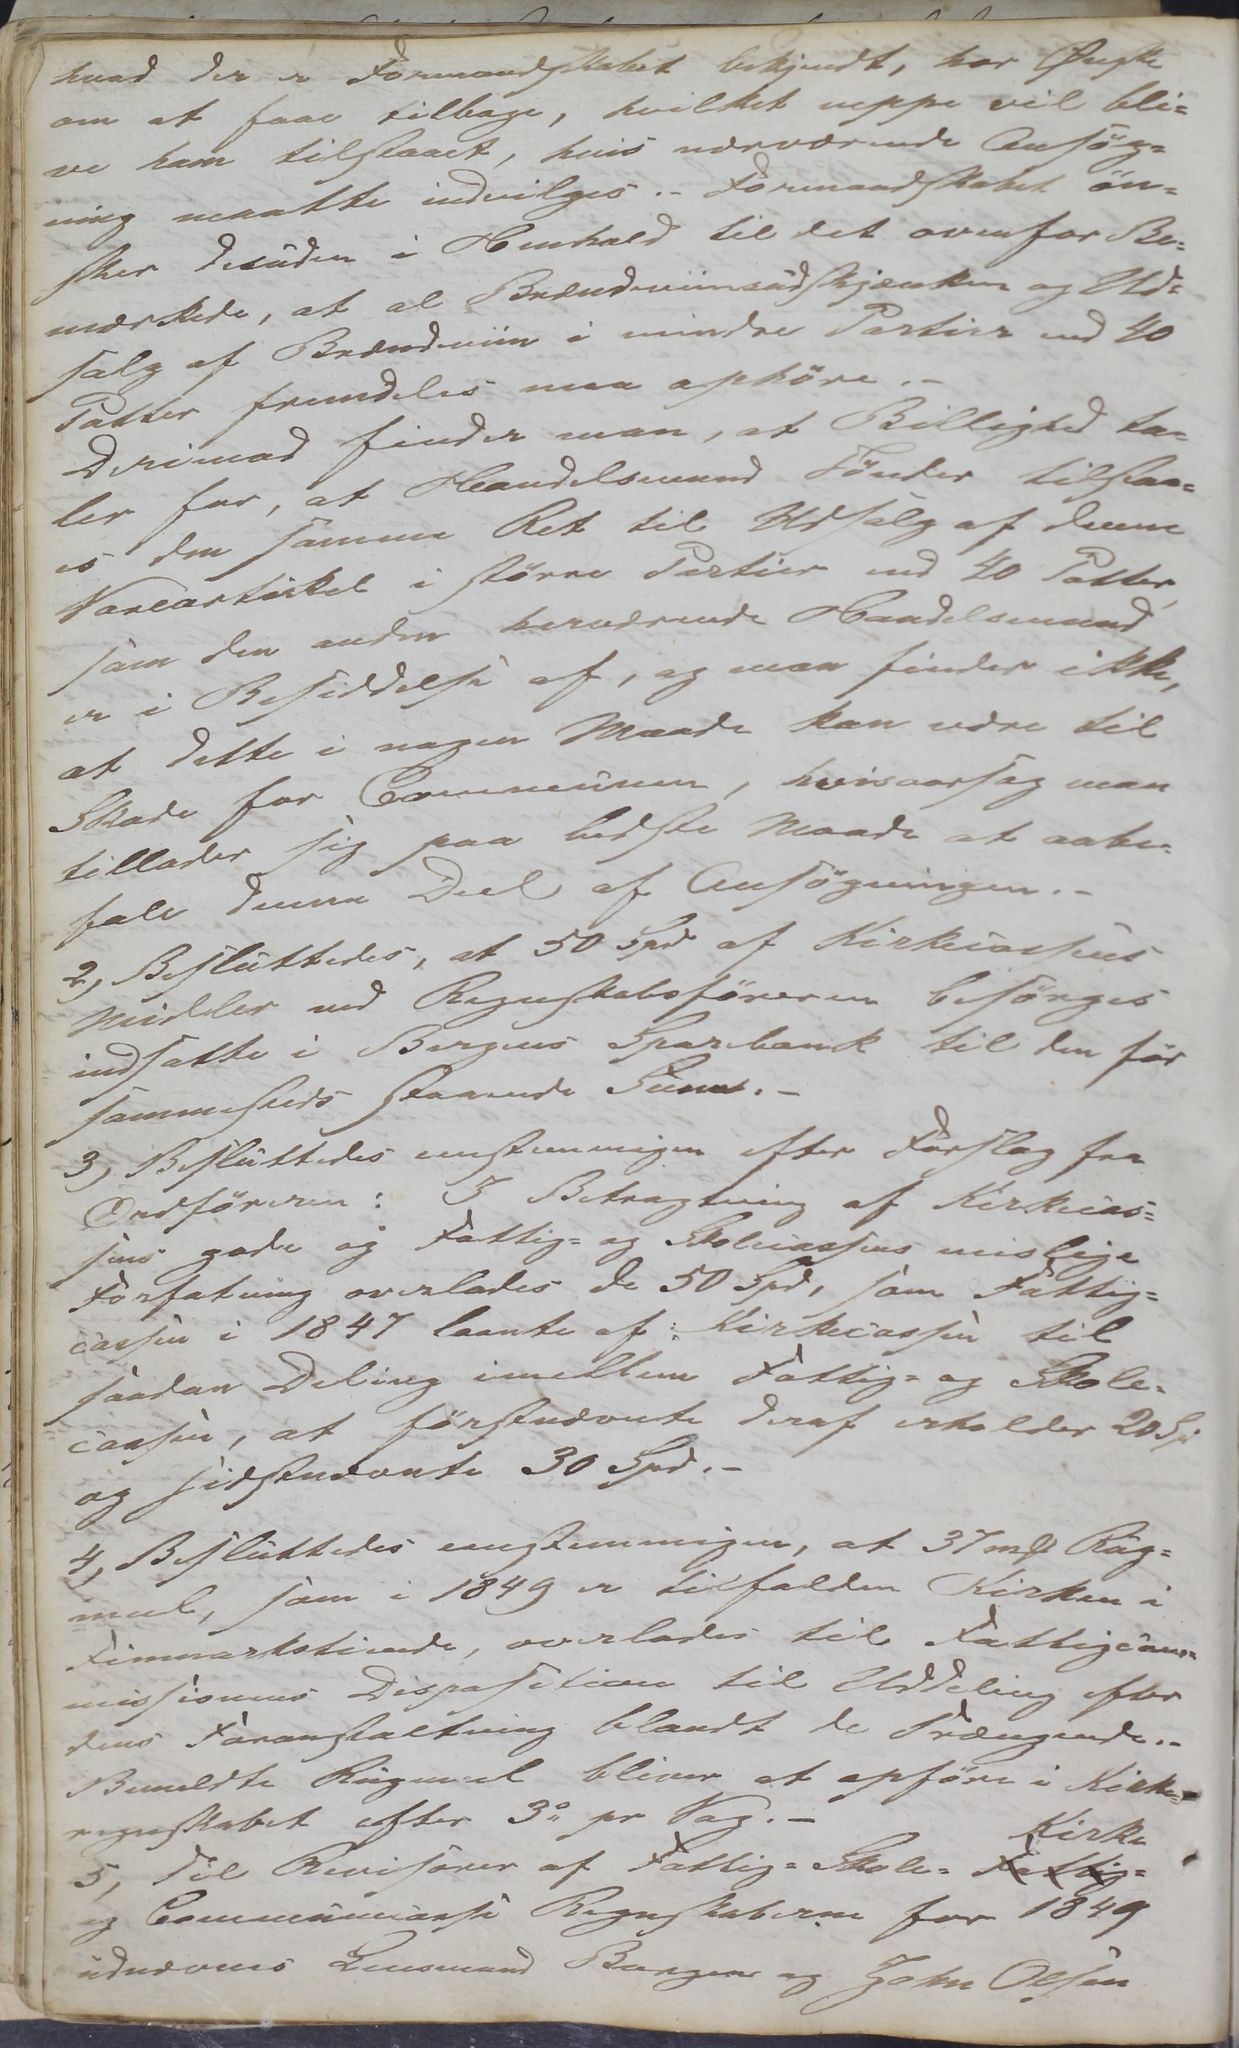 hvad der er Formandskabet bekjendt, har Ønske
om at faae tilbage, hvilket neppe vil bli-
ve ham tilstaaet, hvis nærværende Ansøg-
ning maatte indvilges.- Formandskabet øn-
sker desuden i Henhold til det ovenfor Be-
mærkede, at al Brændeviinsudskjænken og Ud-
salg af Brændeviin i mindre Partier end 40
Potter fremdeles maa ophøre.-
Derimod finder man, at Billighed ta-
ler for, at Handelsmand Tönder tilstaa-
es den samme Ret til Udsalg af denne
Vareartikel i større Partier end 40 Potter,
som den anden herværende Handelsmand
er i Besiddelse af, og man finder ikke,
at dette i nogen Maade kan være til
Skade for Communen, hvisaarsag man
tillader sig paa bedste Maade at anbe-
fale denne Deel af Ansøgningen.-
2, Besluttedes, at 50 Spd af Kirkecassens
Midler ved Regnskabsføreren besørges
indsatte i Bergens Sparebank til den før
sammesteds staaende Summa.-
3, Besluttedes eenstemmigen efter Forslag fra
Ordføreren: I Betragtning af Kirkecas-
sens gode og Fattig- og Skolecassens mislige
Forfatning overlades de 50 Spd, som Fattig-
cassen i 1847 laante af Kirkecassen til
saadan Deling imellem Fattig- og Skole-
cassen, at førstnævnte deraf erholder 20 Sp
og sidstnævnte 30 Spd.-
4, Besluttedes eenstemmigen, at 37 m[k] Rug-
meel, som i 1849 er tilfalden Kirken i
Finmarkstiende, overlades til Fattigcom-
missionens Disposition til Uddeling efter
dens Foranstaltning blandt de Trængende.-
Bemeldte Rugmeel bliver at opføre i Kirke-
regnskabet efter 3° pr Vog.-
Kirke
5, Til Revisorer af Fattig- Skole- Fattig-
og Communecasse Regnskaberne for 1849
udnævnes Lensmand Borgen og John Olsen